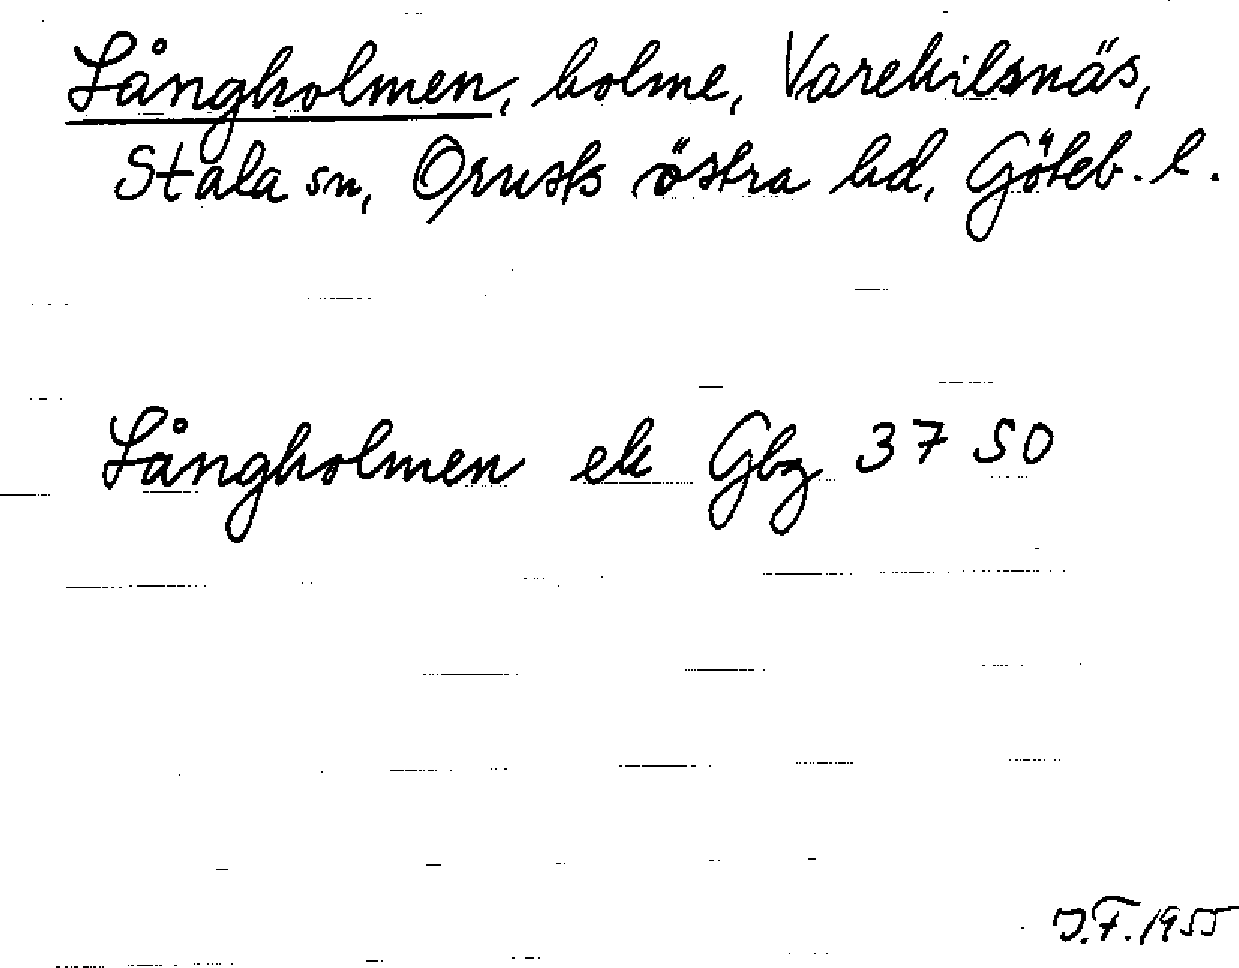 Långholmen, holme, Varekilsnäs,
Stala sn, Orusts östra hd, Göteb. l.
Långholmen ek Gbg 37 50
J.F. 1955